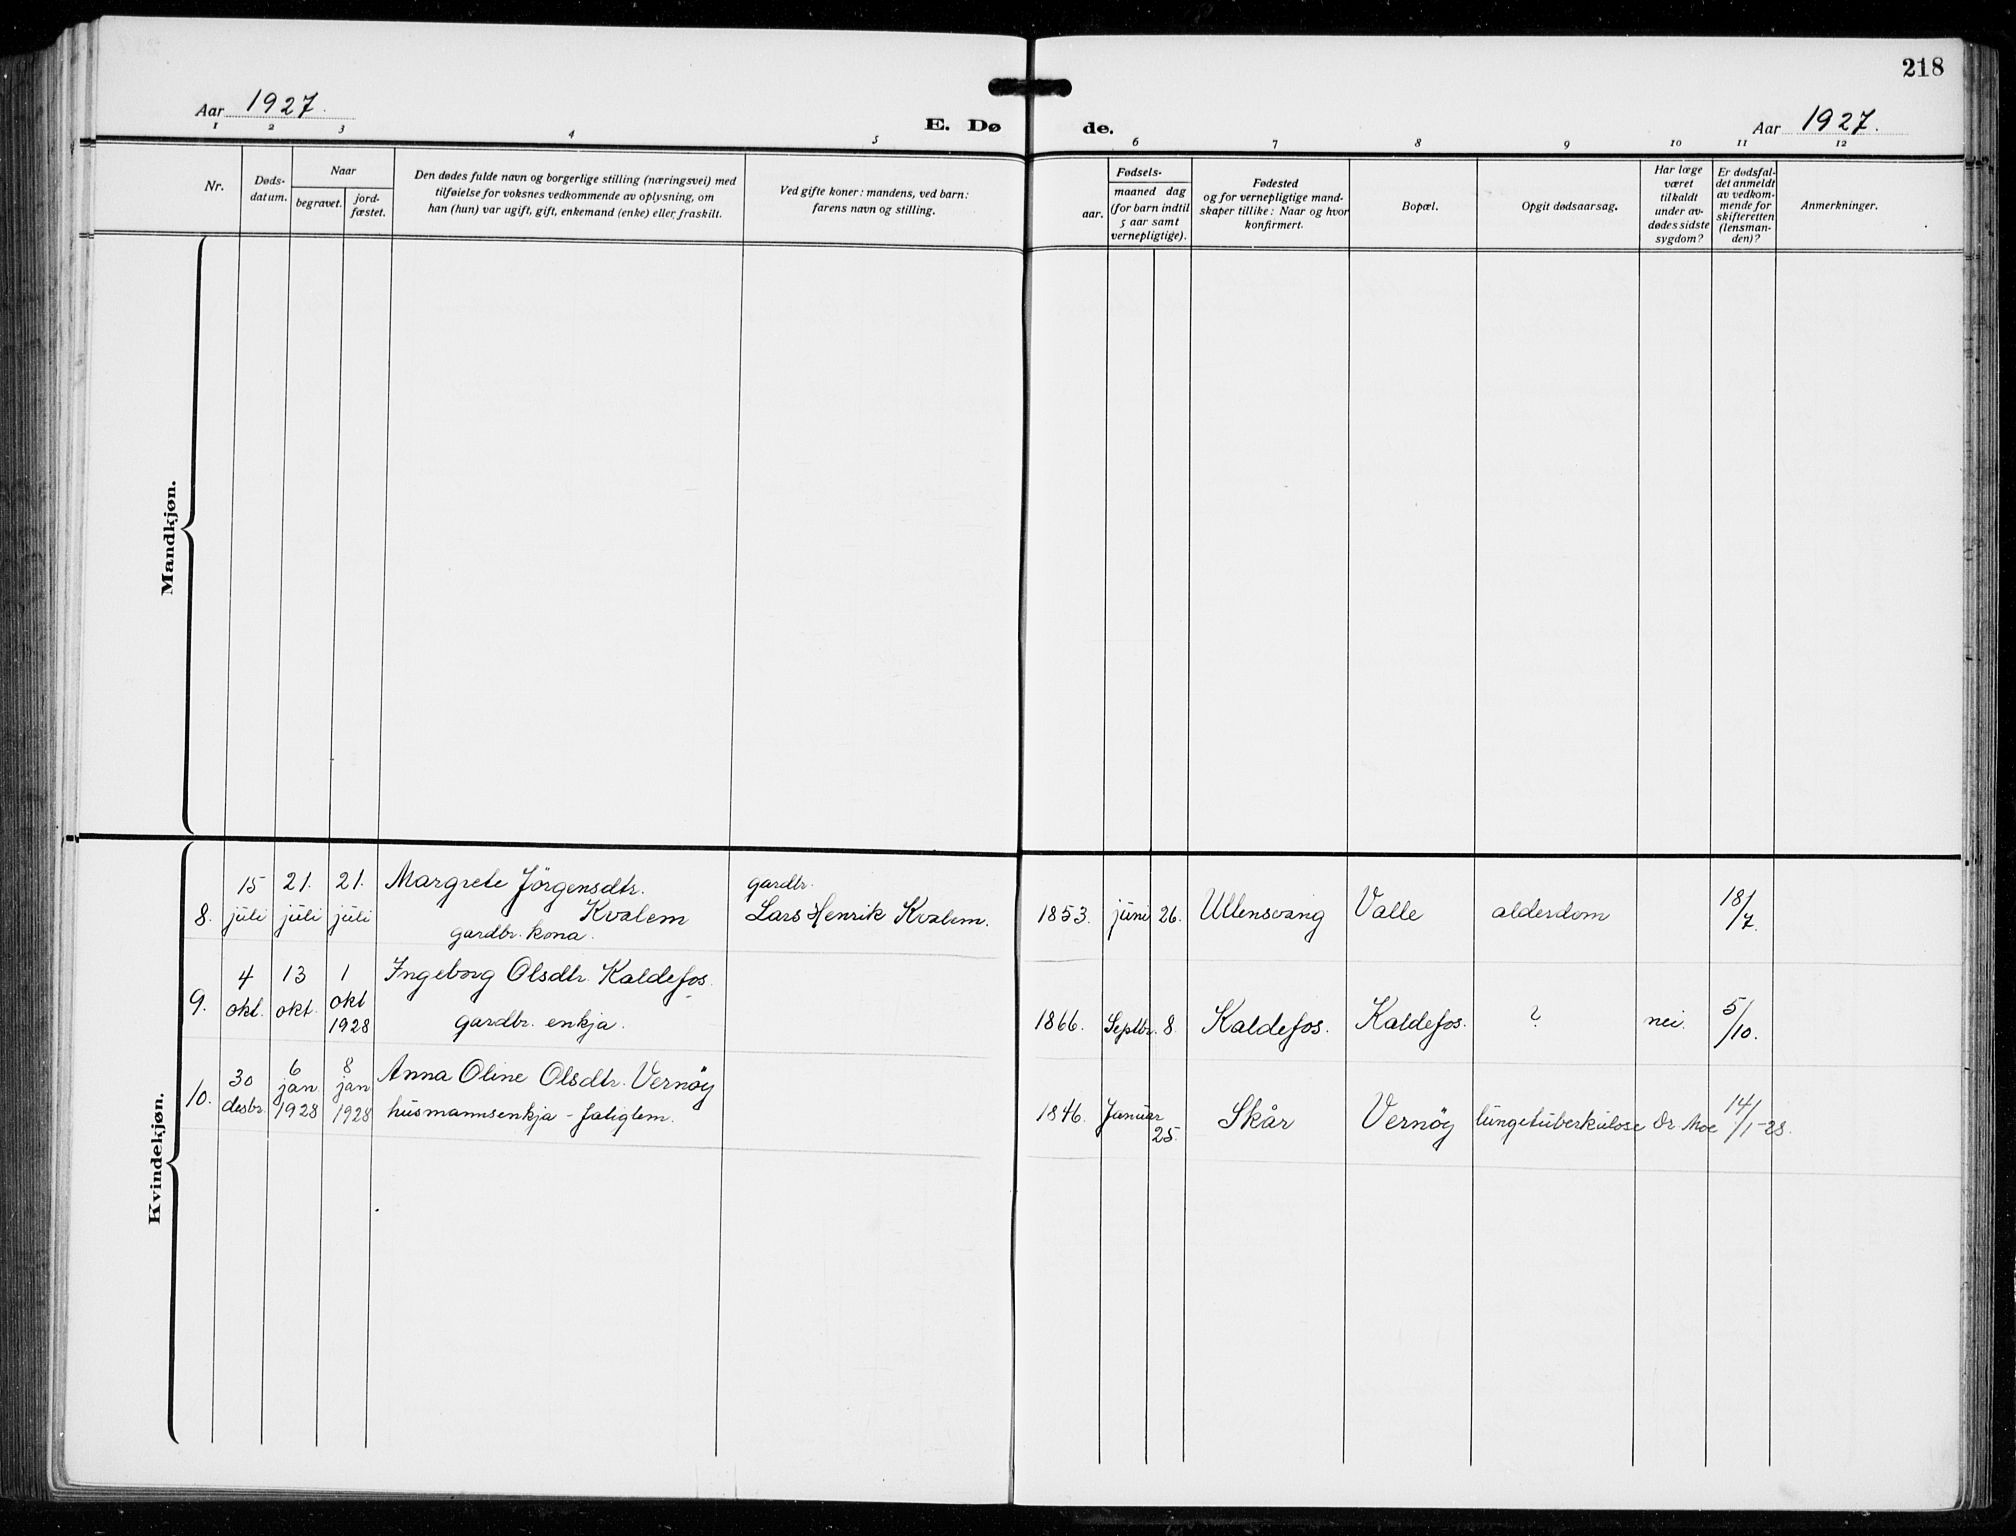 218
Aar 1927.
E. Dø de.
Aar 1927.
1 2 3 4 5 6 7 8 9 10 11 12
Nr.
Døds-
datum.
Naar
begravet.
jord-
fæstet.
Den dødes fulde navn og borgerlige stilling (næringsvei) med
tilføielse for voksnes vedkommende av oplysning, om
han (hun) var ugift, gift, enkemand (enke) eller fraskilt.
Ved gifte koner: mandens, ved barn:
farens navn og stilling.
Fødsels-
aar.
maaned dag
(for barn indtil
5 aar samt
vernepligtige).
Fødested
og for vernepligtige mand-
skaper tillike: Naar og hvor
konfirmert.
Bopæl.
Opgit dødsaarsag.
Har læge
været
tilkaldt
under av-
dødes sidste
sygdom?
Er dødsfal-
det anmeldt
av vedkom-
mende for
skifteretten
(lensman-
den)?
Anmerkninger.
Mandkjøn.
Kvindekjøn.
15 21. 21. Margrete Jörgensdtr. gardbr. 18/7.
8. juli juli juli Kvalem Lars Henrik Kvalem. 1853. juni 26. Ullensvang Valle alderdom
gardbr. kona.
4 13 1 Ingeborg Olsdtr. Kaldefos.
9. okt. okt. okt
1928 gardbr. enkja. 1866. Septbr. 8. Kaldefos. Kaldefos. ? nei. 5/10.
30 6 8 Anna Oline Olsdtr. Vernöy
10. desbr. jan 1928 jan 1928 husmannsenkja - fatiglem. 1846. Januar 25. Skår Vernöy lungetuberkulose Dr. Moe 14/1-28.